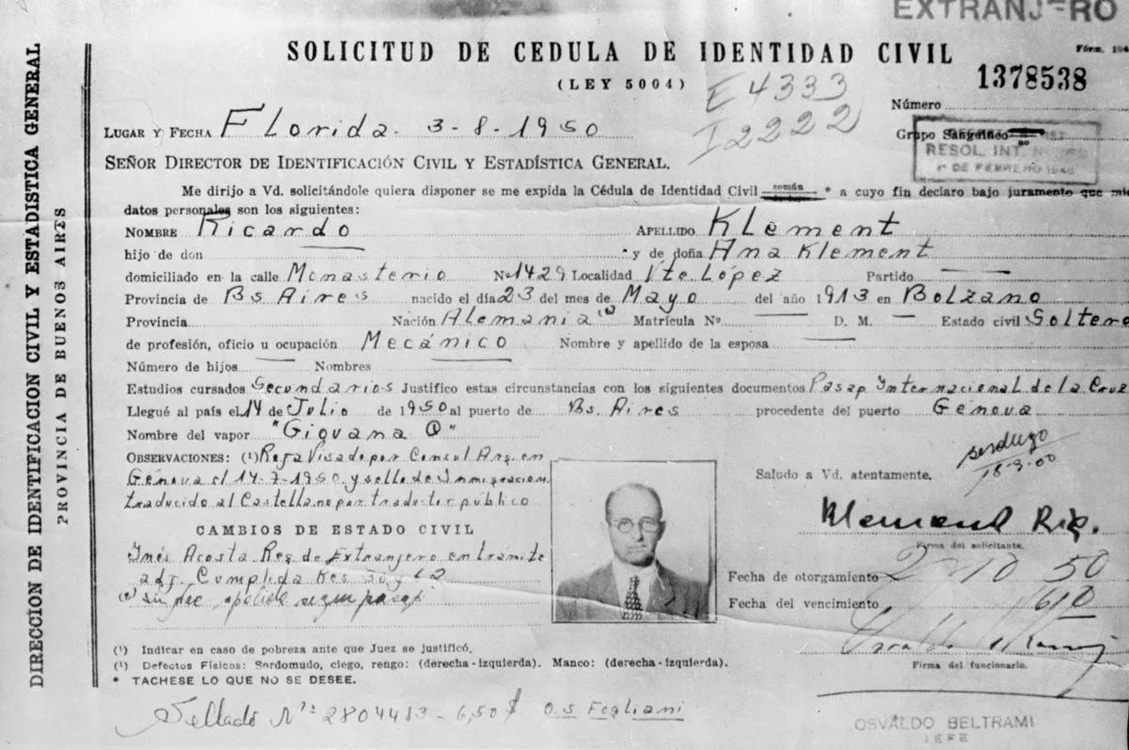 EXTRANJERO
SOLICITUD DE CEDULA DE IDENTIDAD CIVIL
Fórm. 104
(LEY 5004)
1378538
E 4333
I 2222
Número
LUGAR Y FECHA Florida. 3-8-1950
Grupo Sanguíneo
RESOL. INT. N
DE FEBRERO 1946
SEÑOR DIRECTOR DE IDENTIFICACIÓN CIVIL Y ESTADÍSTICA GENERAL.
Me dirijo a Vd. solicitándole quiera disponer se me expida la Cédula de Identidad Civil común * a cuyo fin declaro bajo juramento que mis
datos personales son los siguientes:
NOMBRE Ricardo APELLIDO Klement
hijo de don — y de doña Ana Klement
domiciliado en la calle Monasterio No 1429 Localidad Vte López Partido —
Provincia de Bs Aires nacido el día 23 del mes de Mayo del año 1913 en Bolzano
Provincia Nación Alemania Matrícula No — D. M. — Estado civil Soltero
de profesión, oficio u ocupación Mecánico Nombre y apellido de la esposa —
Número de hijos — Nombres —
Estudios cursados Secundarios Justifico estas circunstancias con los siguientes documentos Pasap Internacional de la Cruz
Llegué al país el 14 de Julio de 1950 al puerto de Bs. Aires procedente del puerto Génova
Nombre del vapor "Giovana O"
OBSERVACIONES: (1) Visado por Consul Arg. en
Génova el 14-7-1950 y sello de Inmigracion
traducido al Castellano por traductor público
Saludo a Vd. atentamente.
18-9-00
CAMBIOS DE ESTADO CIVIL
Firma del solicitante.
Inés Acosta Reg de Extranjero en tramite
adj. Cumplida
Fecha de otorgamiento 2 10 50
Fecha del vencimiento 60
Firma del funcionario.
(¹) Indicar en caso de pobreza ante que Juez se justificó.
(¹) Defectos Físicos: Sordomudo, ciego, rengo: (derecha-izquierda). Manco: (derecha-izquierda).
* TACHESE LO QUE NO SE DESEE.
Sellado Nº: 2804483 - 6,50 $ O.S. Fogliani
OSVALDO BELTRAMI
JEFE
DIRECCION DE IDENTIFICACION CIVIL Y ESTADISTICA GENERAL
PROVINCIA DE BUENOS AIRES